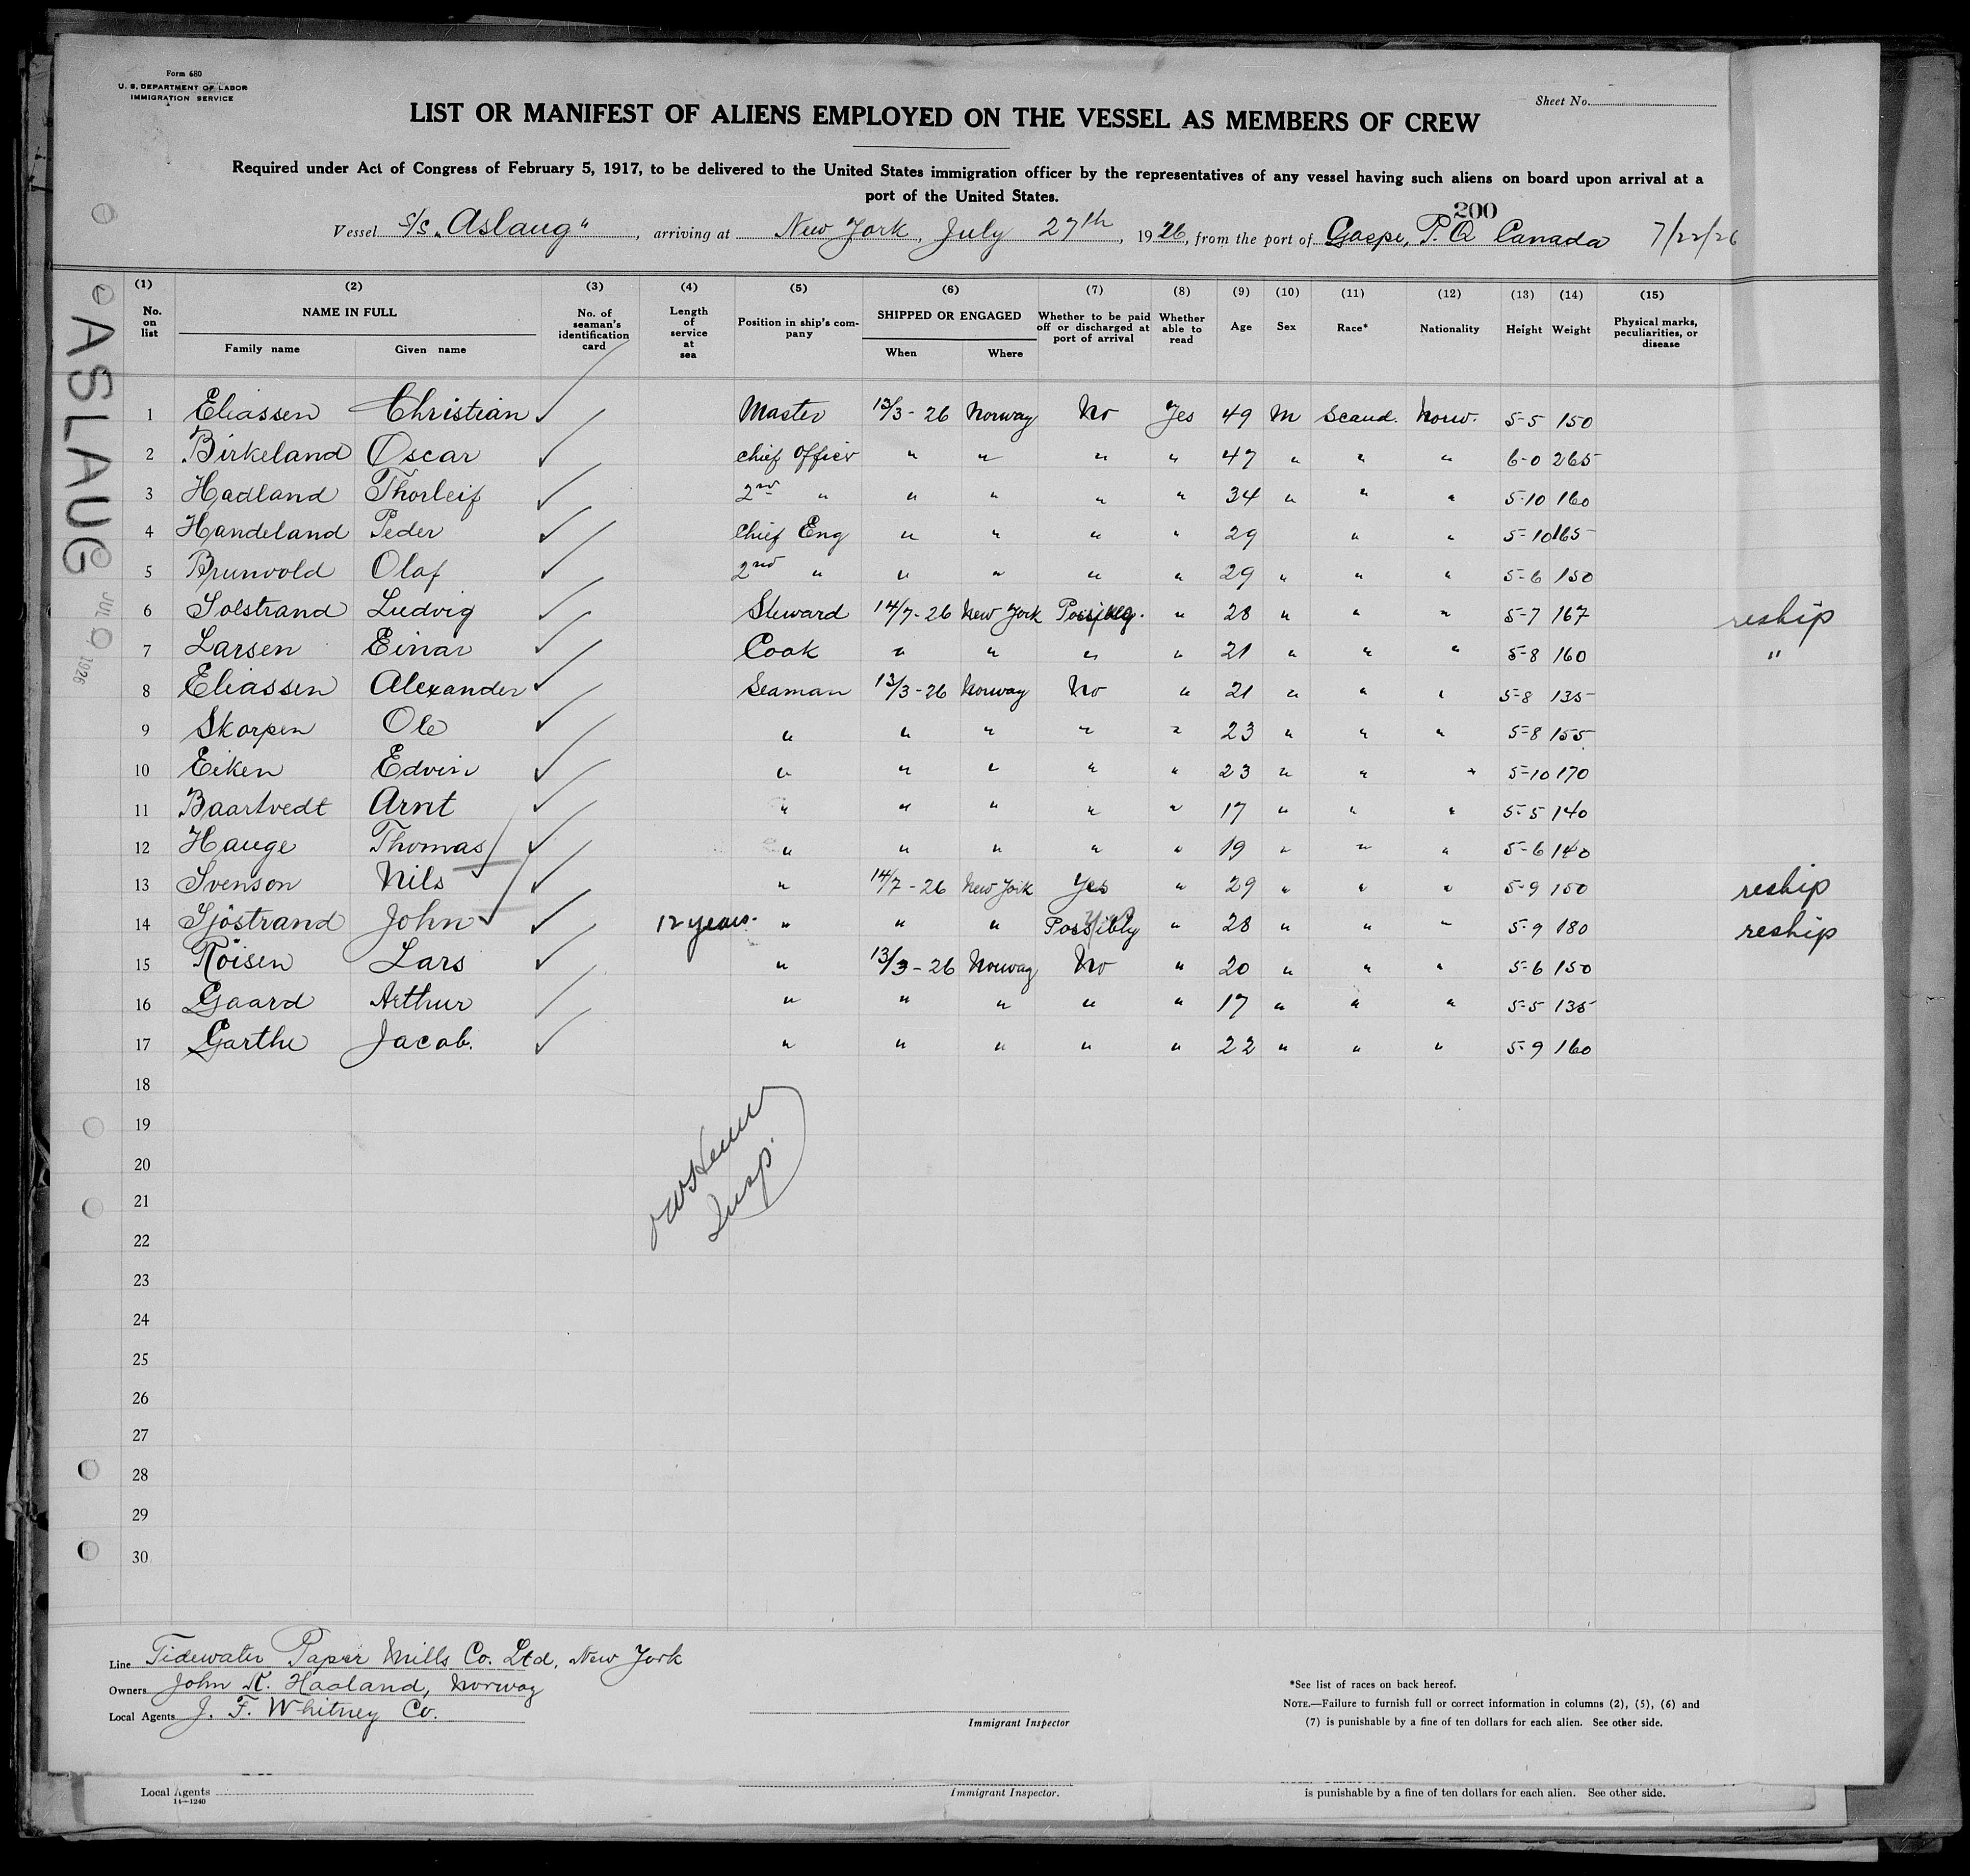 Form 680
U. S. DEPARTMENT OF LABOR
IMMIGRATION SERVICE
Sheet No.
LIST OR MANIFEST OF ALIENS EMPLOYED ON THE VESSEL AS MEMBERS OF CREW
Required under Act of Congress of February 5, 1917, to be delivered to the United States immigration officer by the representatives of any vessel having such aliens on board upon arrival at a
port of the United States.
200
Vessel S/S "Aslaug", arriving at New York, July 27th, 1926, from the port of Gaspe, P.Q Canada 7/22/26
(1) (2) (3) (4) (5) (6) (7) (8) (9) (10) (11) (12) (13) (14) (15)
No. on list NAME IN FULL Family name Given name No. of seaman's identification card Length of service at sea Position in ship's company SHIPPED OR ENGAGED When Where Whether to be paid off or discharged at port of arrival Whether able to read Age Sex Race* Nationality Height Weight Physical marks, peculiarities, or disease
ASLAUG
1926
1 Eliassen Christian ✓ Master 13/3-26 Norway No Yes 49 M Scand. Norw. 5-5 150
2 Birkeland Oscar ✓ Chief Officer " " " " 47 " " " 6-0 265
3 Hadland Thorleif ✓ 2nd " " " " " 34 " " " 5-10 160
4 Handeland Peder ✓ Chief Eng " " " " 29 " " 5-10 165
5 Brunvold Olaf ✓ 2nd " " " " " 29 " " " 5-6 150
6 Solstrand Ludvig ✓ Steward 14/7-26 New York " 28 " " " 5-7 167 reship
7 Larsen Einar ✓ Cook " " " " 21 " " " 5-8 160 "
8 Eliassen Alexander ✓ Seaman 13/3-26 Norway No " 21 " " " 5-8 135
9 Skorpen Ole ✓ " " " " " 23 " " " 5-8 155
10 Eiken Edvin ✓ " " " " " 23 " " " 5-10 170
11 Baartvedt Arnt ✓ " " " " " 17 " " " 5-5 140
12 Hauge Thomas ✓ " " " " " 19 " " " 5-6 140
13 Svenson Nils ✓ " 14/7-26 New York Yes " 29 " " " 5-9 150 reship
14 Sjöstrand John ✓ 12 years. " " " Possibly " 28 " " " 5-9 180 reship
15 Röisen Lars ✓ " 13/3-26 Norway No " 20 " " " 5-6 150
16 Gaard Arthur ✓ " " " " " 17 " " " 5-5 135
17 Garthe Jacob. ✓ " " " " " 22 " " " 5-9 160
18
19
20
21
22
23
24
25
26
27
28
29
30
Insp.
Line Tidewater Paper Mills Co. Ltd, New York
Owners John K. Haaland, Norway
Local Agents J. F. Whitney Co.
Immigrant Inspector
*See list of races on back hereof.
NOTE.—Failure to furnish full or correct information in columns (2), (5), (6) and
(7) is punishable by a fine of ten dollars for each alien. See other side.
Local Agents
14—1240
Immigrant Inspector.
is punishable by a fine of ten dollars for each alien. See other side.